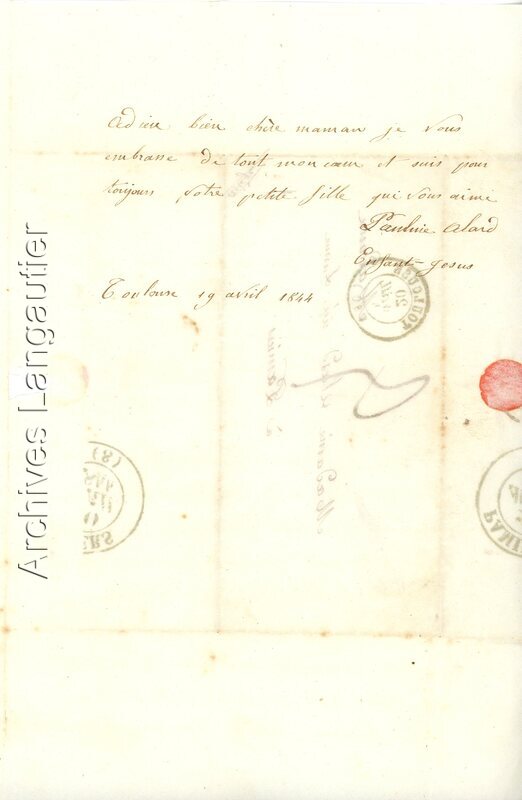 Adieu bien chère maman je vous
embrasse de tout mon cœur et suis pour
toujours votre petite fille qui vous aime
Pauline Alard
Enfant-Jesus
Toulouse 19 avril 1844
Archives Langautier
TOULOUSE
20
Madame
PAMI
ERS
(8)